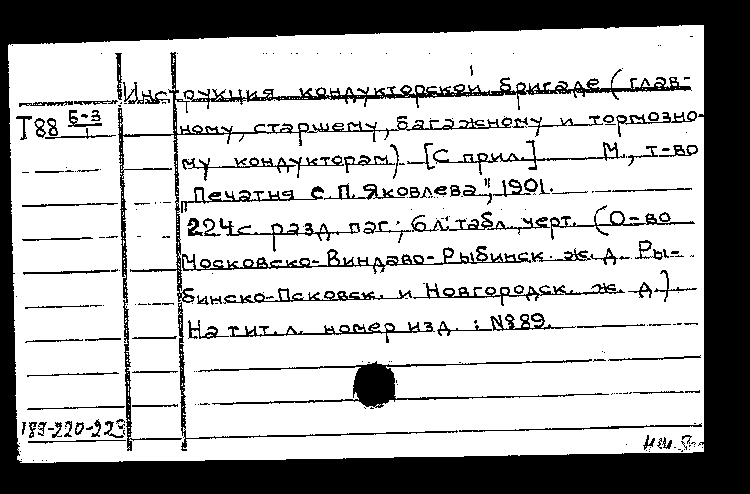 Инструкция кондукторской бригаде (глав-
Т88 Б-3/1 ному, старшему, багажному и тормозно-
му кондукторам). [С прил.] М., т-во
"Печатня С.П. Яковлева", 1901.
224 с. разд. паг.; 6 л. табл., черт. (О-во
Московско-Виндаво-Рыбинск. ж.д. Ры-
бинско-Псковск. и Новгородск. ж. д.).
На тит. л. номер изд.: №89.
189-220-223